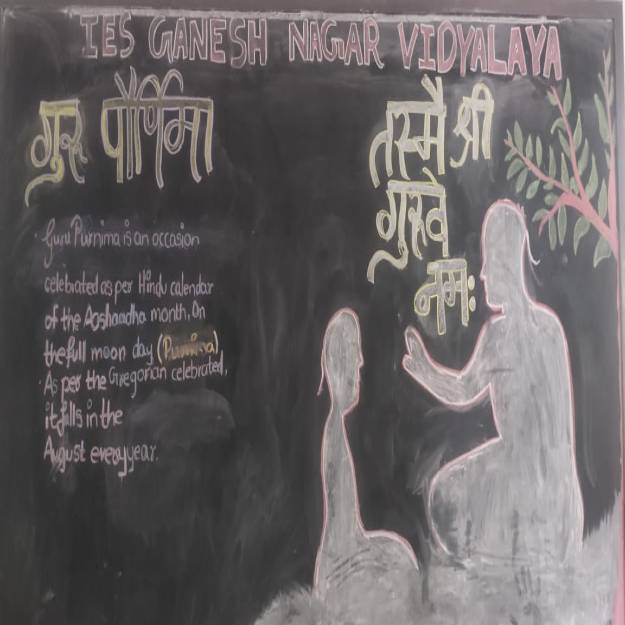 IES GANESH NAGAR VIDYALAYA
गुरु पौर्णिमा
Guru Purnima is an occasion
celebrated as per Hindu calendar
of the Aashaadha month, On
the full moon day (Purnima)
As per the Gregorian celebrated,
it falls in the
August every year.
तस्मै श्री
गुरुवे
नमः